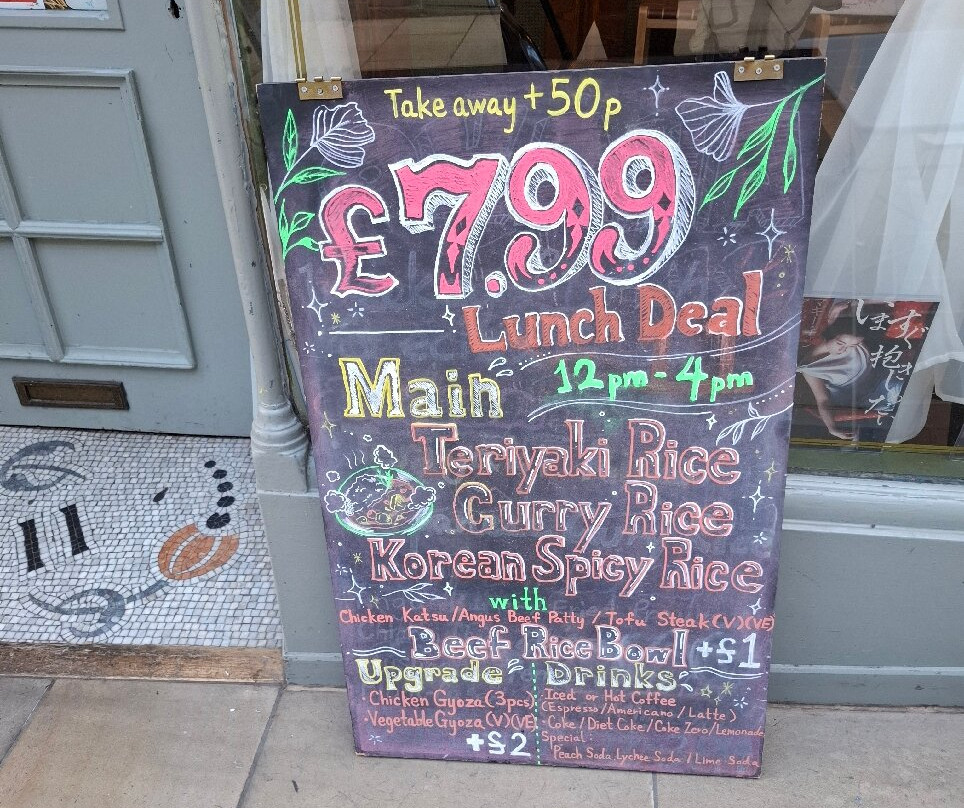 Take away +50p
£7.99
Lunch Deal
12pm - 4pm
Main
Teriyaki Rice
Curry Rice
Korean Spicy Rice
with
Chicken Katsu/Angus Beef Patty / Tofu Steak(V)(VE)
Beef Rice Bowl +£1
Upgrade
· Chicken Gyoza(3pcs)
· Vegetable Gyoza (V)(VE)
+£2
Drinks
Iced or Hot Coffee
(Espresso/Americano/Latte)
· Coke/Diet Coke/Coke Zero/Lemonade
Special:
Peach Soda Lychee Soda / Lime Soda
11
います
抱き